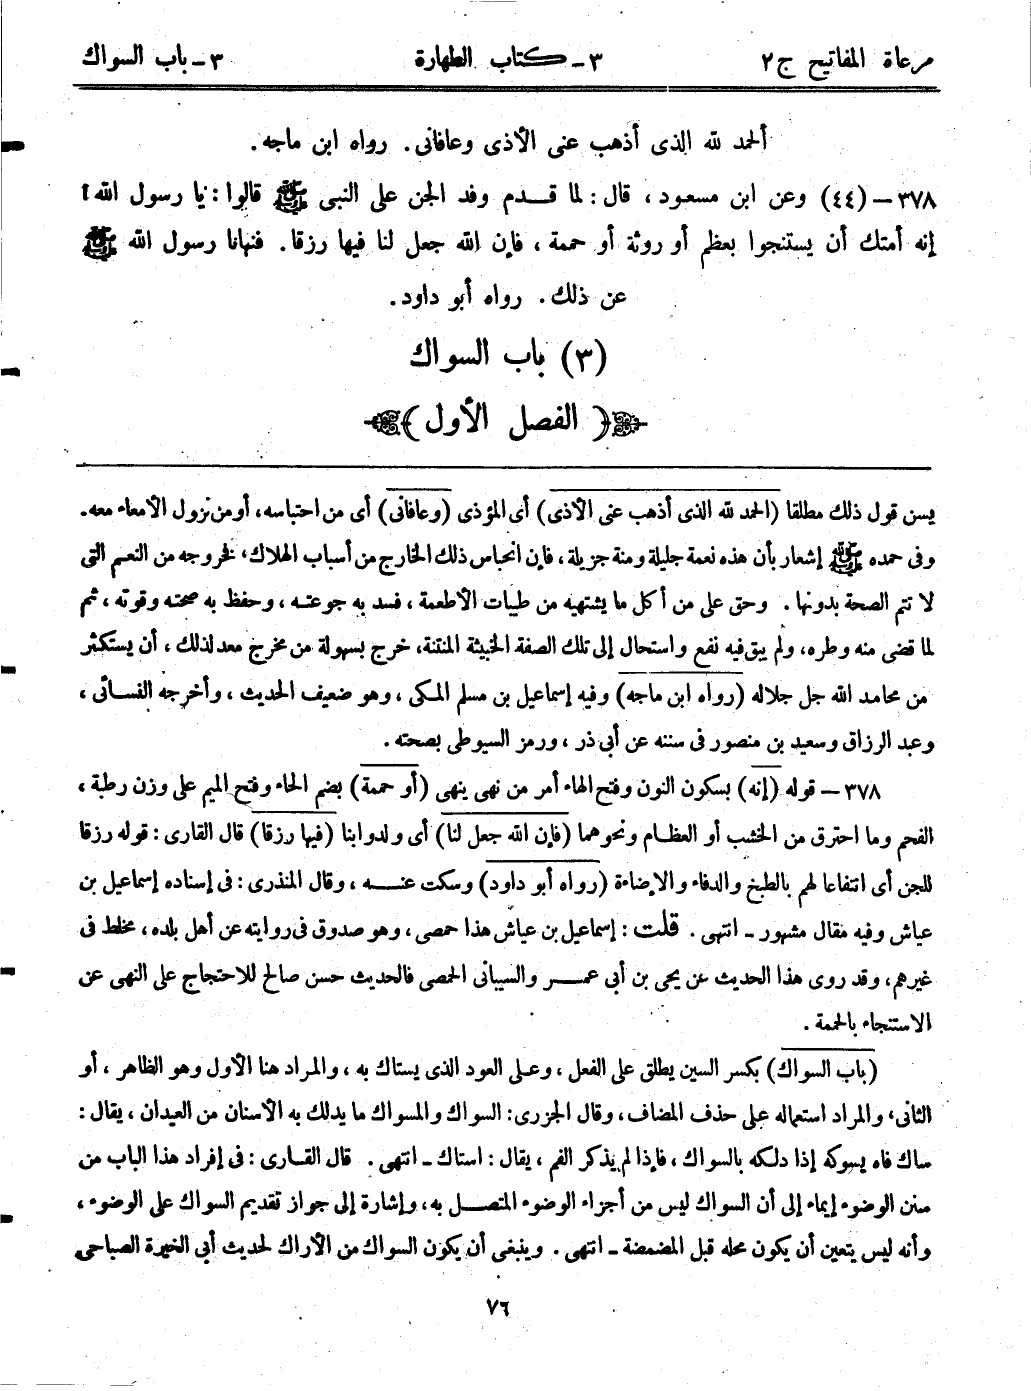 مرعاة المفاتيح ج ٢ ٣ - كتاب الطهارة ٣ - باب السواك
ألحمد لله الذى أذهب عنى الأذى وعافانى. رواه ابن ماجه.
٣٧٨ – (٤٤) وعن ابن مسعود، قال: لما قدم وفد الجن على النبى ﷺ قالوا: يا رسول الله!
إنه أمتك أن يستنجوا بعظم أو روثة أو حممة، فإن الله جعل لنا فيها رزقا. فنهانا رسول الله ﷺ
عن ذلك. رواه أبو داود.
(٣) باب السواك
﴿ الفصل الأول ﴾
يسن قول ذلك مطلقا (الحمد لله الذى أذهب عنى الأذى) أى المؤذى (وعافانى) أى من احتباسه، أو من نزول الأمعاء معه.
وفى حمده ﷺ إشعار بأن هذه نعمة جليلة ومنة جزيلة، فإن انحباس ذلك الخارج من أسباب الهلاك، فخروجه من النعم التى
لا تتم الصحة بدونها. وحق على من أكل ما يشتهيه من طيبات الأطعمة، فسد به جوعته، وحفظ به صحته وقوته، ثم
لما قضى منه وطره، ولم يبق فيه نفع واستحال إلى تلك الصفة الخبيثة المنتنة، خرج بسهولة من مخرج معد لذلك، أن يستكثر
من محامد الله جل جلاله (رواه ابن ماجه) وفيه إسماعيل بن مسلم المكى، وهو ضعيف الحديث، وأخرجه النسائى،
وعبد الرزاق وسعيد بن منصور فى سننه عن أبى ذر، ورمز السيوطى بصحته.
٣٧٨ – قوله (إنه) بسكون النون وفتح الهاء أمر من نهى ينهى (أو حممة) بضم الحاء وفتح الميم على وزن رطبة،
الفحم وما احترق من الخشب أو العظام ونحوهما (فإن الله جعل لنا) أى ولدوابنا (فيها رزقا) قال القارى: قوله رزقا
للجن أى انتفاعا لهم بالطبخ والدفاء والإضاءة (رواه أبو داود) وسكت عنه، وقال المنذرى: فى إسناده إسماعيل بن
عياش وفيه مقال مشهور – انتهى. قلت: إسماعيل بن عياش هذا حمصى، وهو صدوق فى روايته عن أهل بلده، مخلط فى
غيرهم، وقد روى هذا الحديث عن يحيى بن أبى عمر والسيبانى الحمصى فالحديث حسن صالح للاحتجاج على النهى عن
الاستنجاء بالحممة.
(باب السواك) بكسر السين يطلق على الفعل، وعلى العود الذى يستاك به، والمراد هنا الأول وهو الظاهر، أو
الثانى، والمراد استعماله على حذف المضاف، وقال الجزرى: السواك والمسواك ما يدلك به الأسنان من العيدان، يقال:
ساك فاه يسوكه إذا دلكه بالسواك، فإذا لم يذكر الفم، يقال: استاك – انتهى. قال القارى: فى إفراد هذا الباب من
سنن الوضوء إيماء إلى أن السواك ليس من أجزاء الوضوء المتصل به، وإشارة إلى جواز تقديم السواك على الوضوء،
وأنه ليس يتعين أن يكون محله قبل المضمضة – انتهى. وينبغى أن يكون السواك من الأراك لحديث أبى الخيرة الصباحى
٧٦